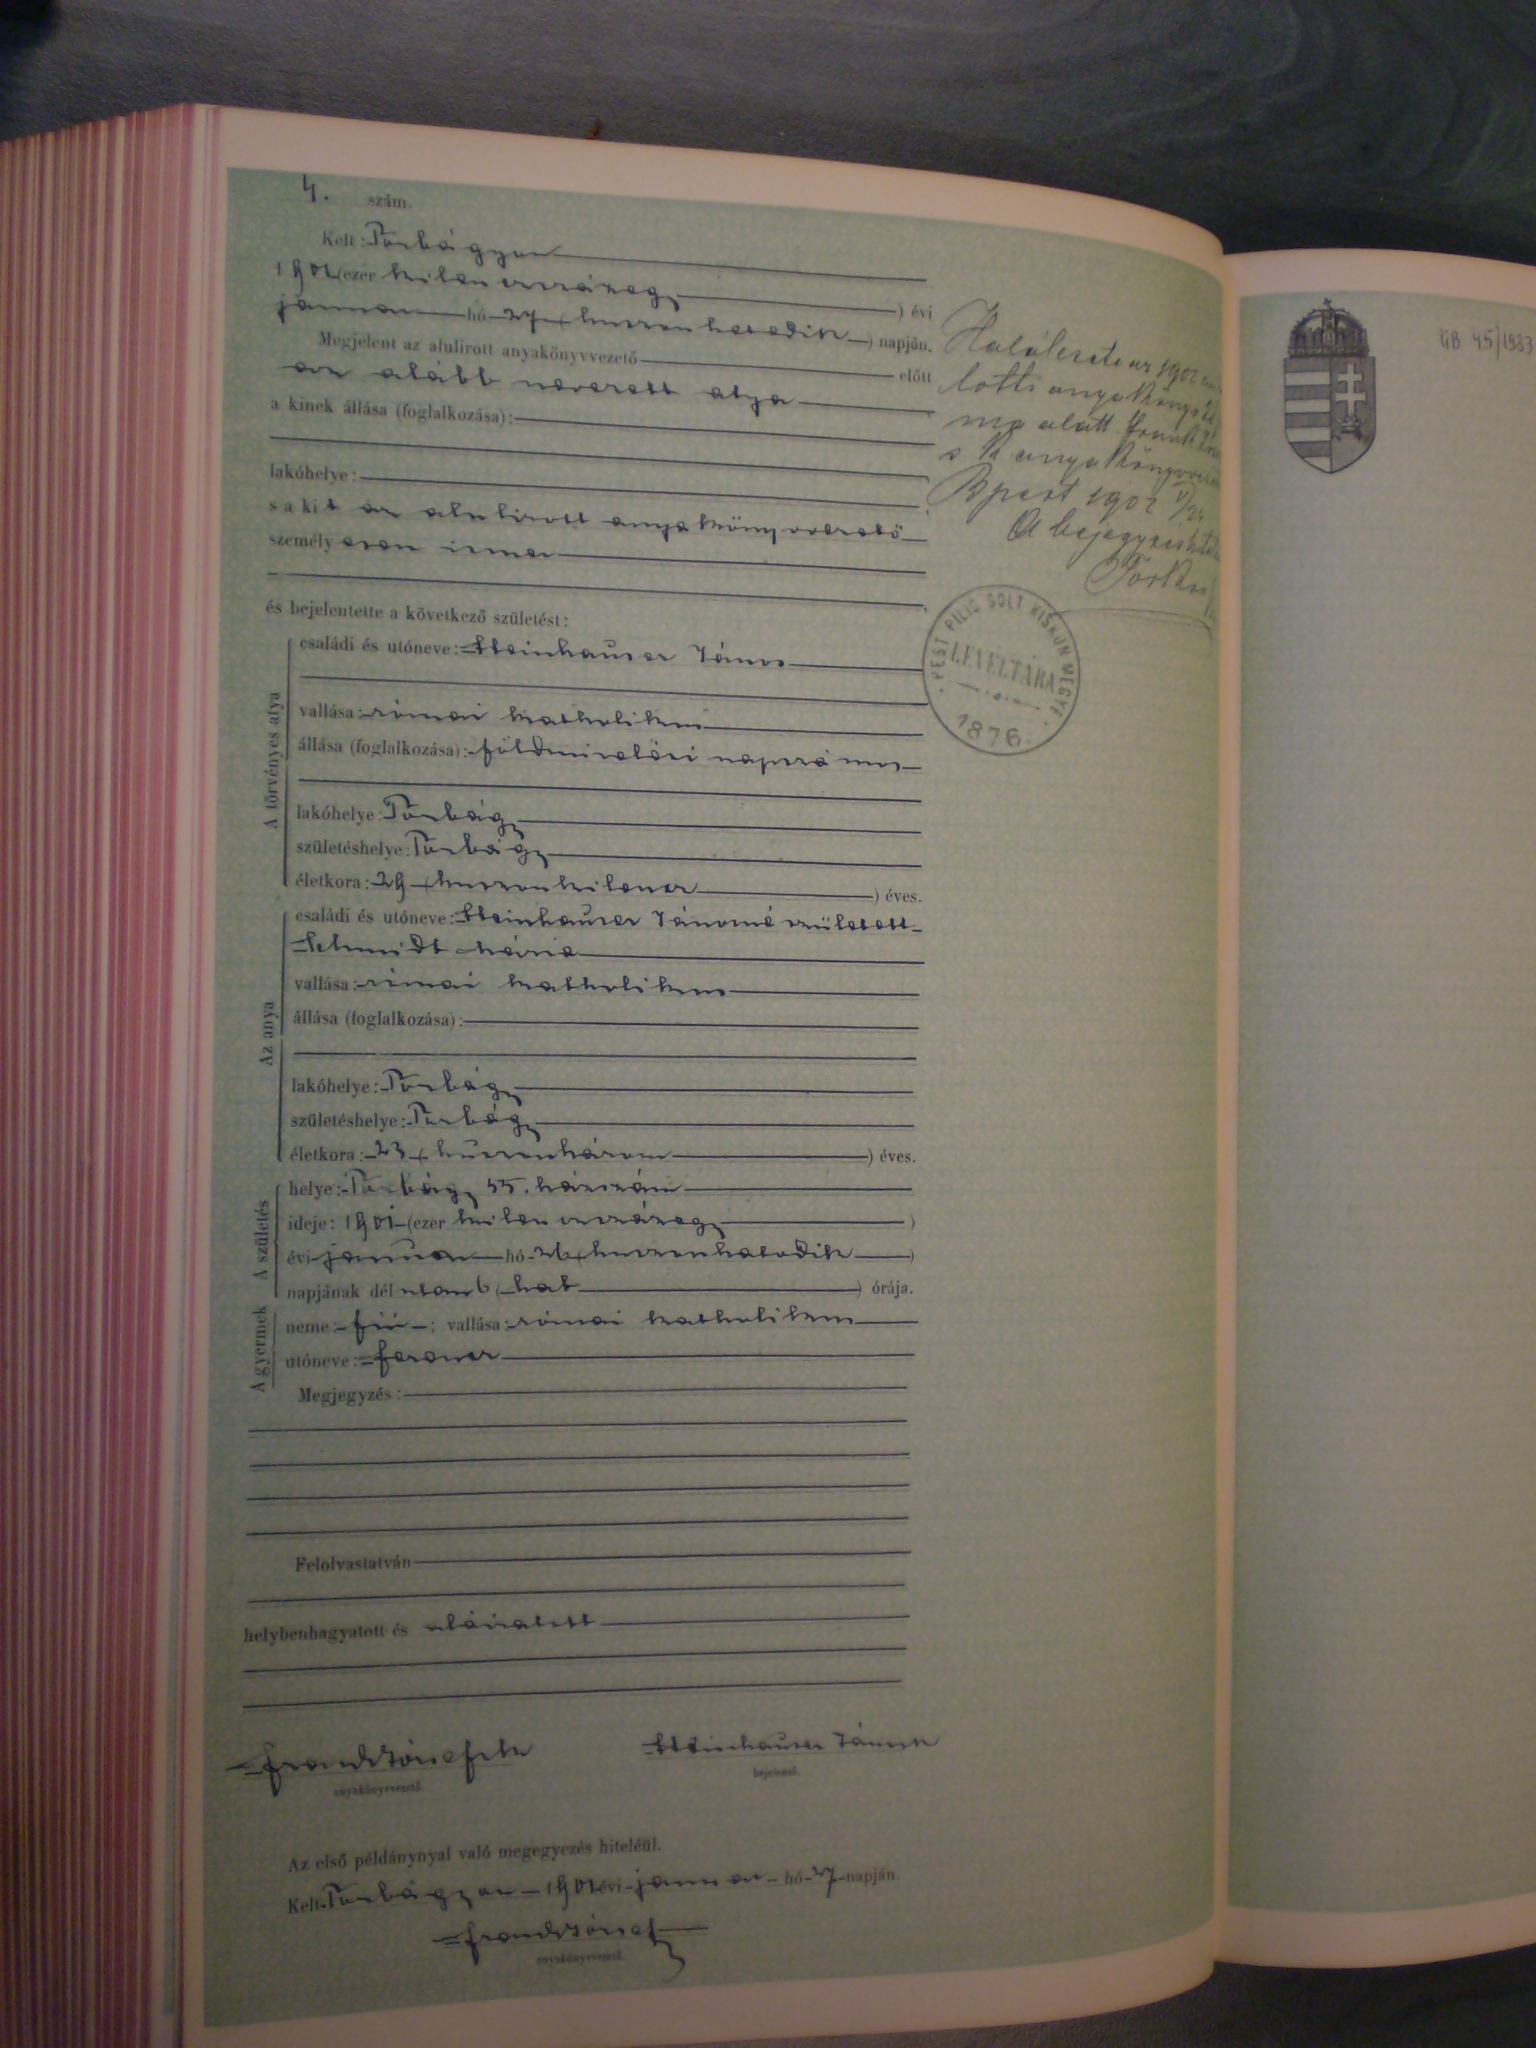 4. szám.
Kelt: Torbágyon
1901 (ezer kilenczszázegy) évi
január hó 27 (huszonhetedik) napján.
Megjelent az alulirott anyakönyvvezető előtt
az alább nevezett atya
a kinek állása (foglalkozása):
lakóhelye:
s a kit az alulirott anyakönyvvezető
személyesen ismer
és bejelentette a következő születést:
A törvényes atya
családi és utóneve: Steinhauser János
vallása: római katholikus
állása (foglalkozása): földmivelési napszámos
lakóhelye: Torbágy
születéshelye: Torbágy
életkora: 29 (huszonkilencz) éves.
Az anya
családi és utóneve: Steinhauser Jánosné született
Schmidt Mária
vallása: római katholikus
állása (foglalkozása):
lakóhelye: Torbágy
születéshelye: Torbágy
életkora: 23 (huszonhárom) éves.
A születés
helye: Torbágy 55. házszám
ideje: 1901 (ezer kilenczszázegy)
évi január hó 26 (huszonhatodik)
napjának dél utan 6 (hat) órája.
A gyermek
neme: fiú; vallása: római katholikus
utóneve: Ferencz
Megjegyzés:
Felolvastatván
helybenhagyatott és aláiratott
Frank József
anyakönyvvezető.
Steinhauser János
bejelentő.
Az első példánynyal való megegyezés hiteléül.
Kelt Torbágyon 1901 évi január hó 27 napján.
Frank József
anyakönyvvezető.
Halálesete az 1902
lotti anyakönyv
ma alatt Frank
s. k. anyakönyvvezető
Bpest 1902 V/24
A bejegyzés
PEST PILIS SOLT KISKUN MEGYE
LEVÉLTÁRA
1876.
ÜB 45/1983